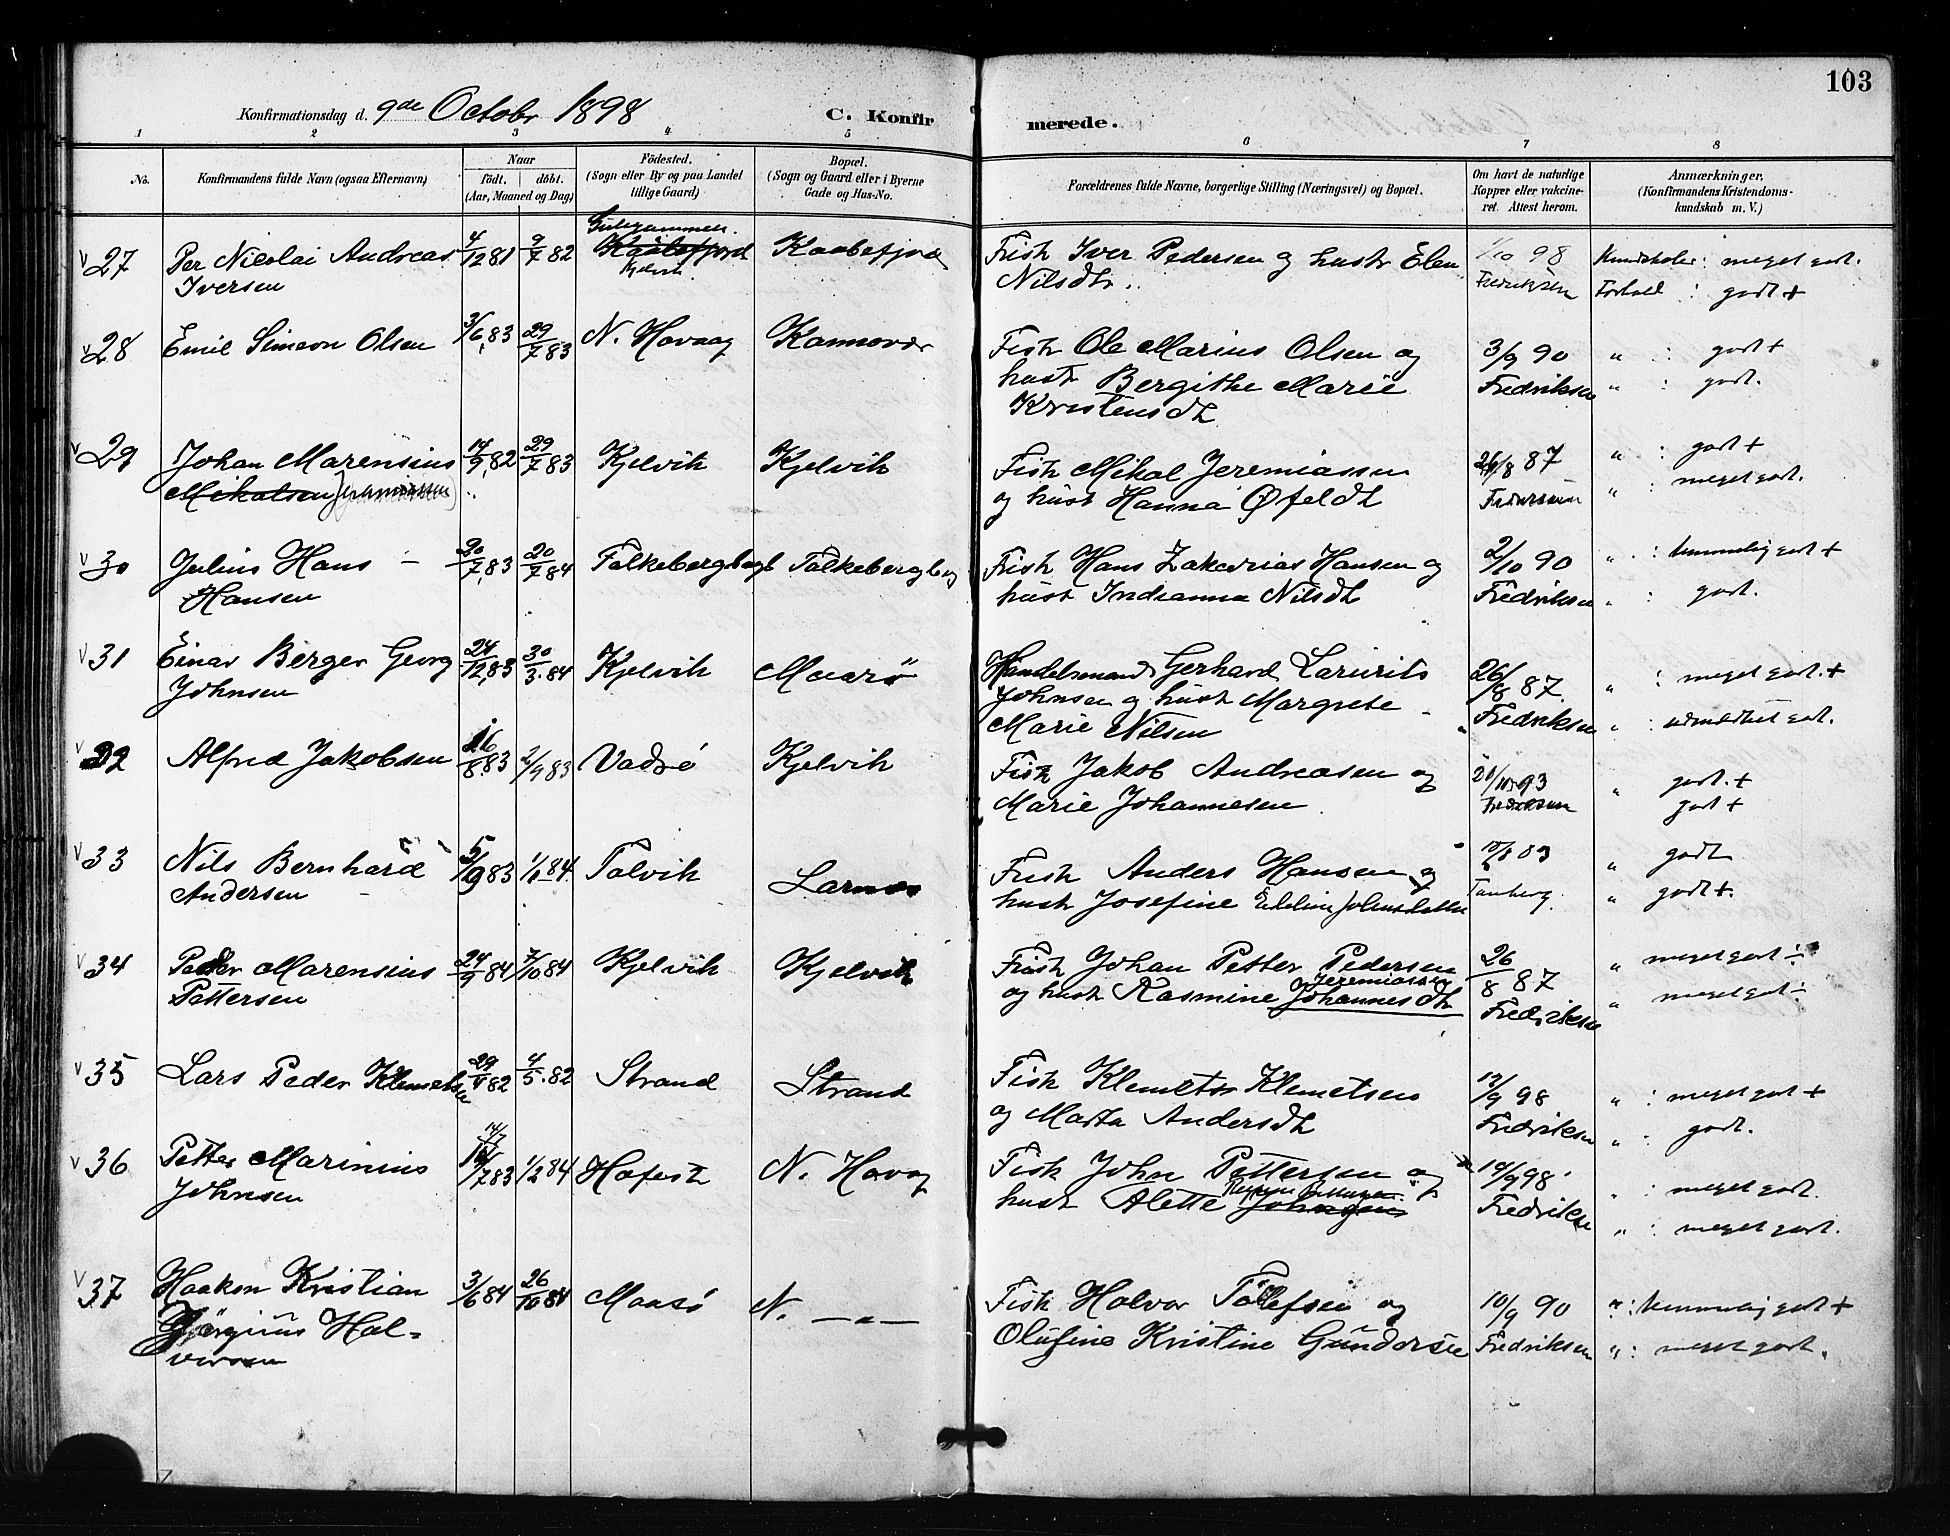 103
Konfirmationsdag d. 9de Octobr 1898
C. Konfirmerede.
1 2 3 4 5 6 7 8
No.
Konfirmandens fulde Navn (ogsaa Efternavn)
Naar
födt. döbt.
(Aar, Maaned og Dag)
Födested.
(Sogn eller By og paa Landet
tillige Gaard)
Bopæl.
(Sogn og Gaard eller i Byerne
Gade og Hus-No.
Forældrenes fulde Navne, borgerlige Stilling (Næringsvei) og Bopæl.
Om havt de naturlige
Kopper eller vakcine-
ret. Attest herom.
Anmærkninger,
(Konfirmandens Kristendoms-
kundskab m. V.)
27 Per Nicolai Andreas 4/12 81 9/7 82 Kaabefjord Kjelvik Kaabefjord Fisk Iver Pedersen og hustr Elen 1/10 98 Kundskaber: meget godt.
Iversen Nilsdtr. Fredriksen Forhold : godt +
28 Emil Simeon Olsen 3/6 83 29/7 83 N. Havaag Kamøvær Fisk Ole Marius Olsen og 3/9 90 " : godt +
hust Bergithe Marie Fredriksen " : godt.
Kristensdt
29 Johan Marensius 14/9 82 29/7 83 Kjelvik Kjelvik Fisk Mikal Jeremiassen 26/8 87 " : godt +
Mikalsen (Jeremiassen) og hust Hanna Øfeldt Fredriksen " : meget godt.
30 Julius Hans - 20/7 83 20/7 84 Falkebergbugt Falkebergbug Fisk Hans Zakarias Hansen og 2/10 90 " : temmelig godt +
Hansen hust Indianna Nilsdt Fredriksen " : godt.
31 Einar Berger Georg 24/12 83 30/3 84 Kjelvik Maasö Handelsmand Gerhard Laurits 26/8 87. " : meget godt. +
Johnsen Johnsen og hust Margrete - Fredriksen " : udmærket godt.
Marie Nilsen
32 Alfred Jakobsen 16/8 83 2/9 83 Vadsö Kjelvik Fisk Jakob Andreasen og 93 " godt. +
Marie Johannesen Fredriksen godt +
33 Nils Bernhard 5/9 83 1/1 84. Talvik Sarnes Fisk Anders Hansen og " godt
Andersen hust Josefine Edeline Johnsdatter Tanberg. " godt +.
34 Petter Marensius 24/9 84 7/10 84 Kjelvik Kjelvik Fisk Johan Petter Pedersen 26/8 87 " meget godt ÷
Pettersen og hust Rasmine Johannesdt Jeremiassen Fredriksen " meget godt ÷
35 Lars Peder Klemetsen 29/4 82 4/5 82 Strand Strand Fisk Klemet Klemetsen 12/9 98 " : meget godt +
og Marta Andersdt Fredriksen " : godt.
36 Petter Marinius 14/7 83 1/2 84 Hafest N. Havag Fisk John Pettersen og 10/9 98 " : meget godt.
Johnsen hust Alette Johnsen Fredriksen " : meget godt.
37 Haakon Kristian 3/6 84 26/10 84 Maasö N. —"— Fisk Halvor Tollefsen og 10/9 90 " : temmelig godt +
Jörginus Hal- Olufine Kristine Gundersen Fredriksen " : meget godt.
vorsen